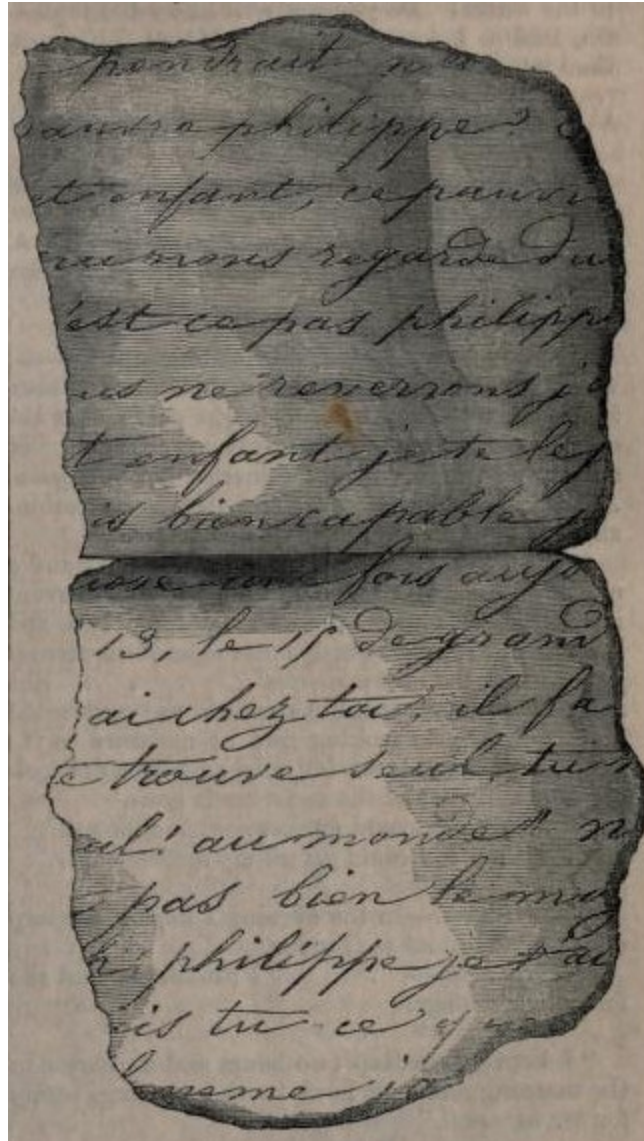 pendrait
philippe
enfant, ce pauvre
nous regarde du
est ce pas philippe
us ne reverrons ja
t enfant je te le
is bien capable
fois aujo
13, le 15 de grand
ai chez toi, il fa
e trouve seul, tu
ul! au monde! n
pas bien le
philippe je t'ai
is tu ce que
meme ja